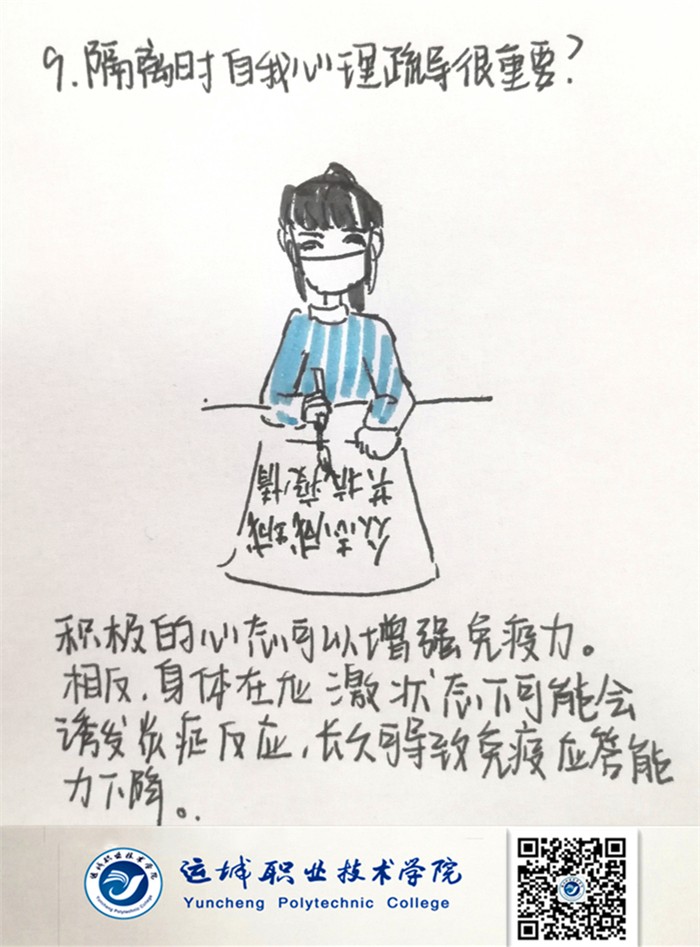 9.隔离时自我心理疏导很重要?
众志成城
共抗疫情
积极的心态可以增强免疫力。
相反,身体在应激状态下可能会
诱发炎症反应,长久可导致免疫应答能
力下降。
运城职业技术学院
Yuncheng Polytechnic College
运城职业技术学院
Yuncheng Polytechnic College